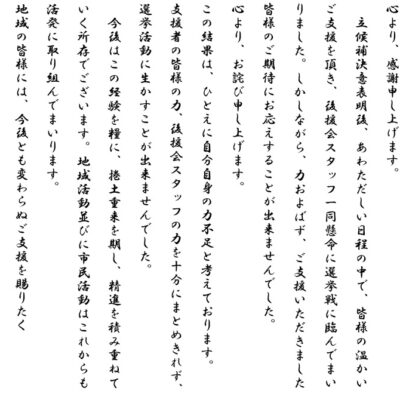 心より、感謝申し上げます。
立候補決意表明後、あわただしい日程の中で、皆様の温かい
ご支援を頂き、後援会スタッフ一同懸命に選挙戦に臨んでまい
りました。しかしながら、力およばず、ご支援いただきました
皆様のご期待にお応えすることが出来ませんでした。
心より、お詫び申し上げます。
この結果は、ひとえに自分自身の力不足と考えております。
支援者の皆様の力、後援会スタッフの力を十分にまとめきれず、
選挙活動に生かすことが出来ませんでした。
今後はこの経験を糧に、捲土重来を期し、精進を積み重ねて
いく所存でございます。地域活動並びに市民活動はこれからも
活発に取り組んでまいります。
地域の皆様には、今後とも変わらぬご支援を賜りたく